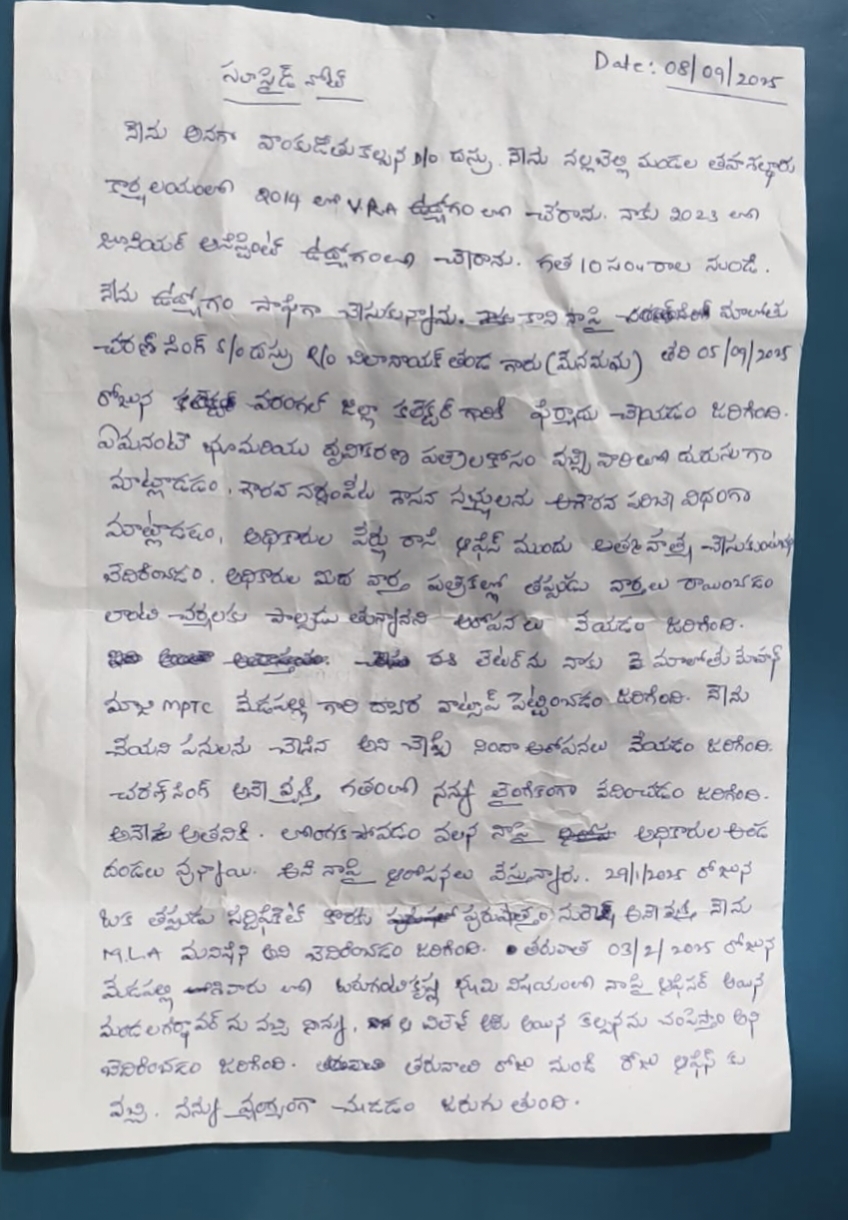 Date: 08/09/2025
సూసైడ్ నోట్
నేను అనగా వాంకుడోతు కల్పన D/o దస్రు. నేను నల్లబెల్లి మండల తహశిల్దారు
కార్యలయంలో 2014 లో V.R.A ఉద్యోగం లో చేరాను. నాకు 2023 లో
జూనియర్ అసిస్టెంట్ ఉద్యోగంలో చేరాను. గత 10 సం॥రాల నుండి.
నేను ఉద్యోగం సాఫీగా చేసుకున్నాను. కాని నాపై మాలోతు
చరణ్ సింగ్ S/o దస్రు R/o బిలానాయక్ తండ గారు (మేనమామ) తేది 05/09/2025
రోజున వరంగల్ జిల్లా కలెక్టర్ గారికి ఫిర్యాదు చేయడం జరిగింది.
ఏమనంటే భూమరియు ధృవికరణ పత్రాలకోసం వచ్చే వారితో దురుసుగా
మాట్లాడడం, గౌరవ నర్సంపేట శాసన సభ్యులను అగౌరవ పరిచే విధంగా
మాట్లాడడం, అధికారుల పేర్లు రాసి ఆఫీస్ ముందు ఆత్మహత్య చేసుకుంటానని
బెదిరించడం. అధికారుల మీద వార్త పత్రికల్లో తప్పుడు వార్తలు రాయించడం
లాంటి చర్యలకు పాల్పడు తున్నానని ఆరోపనలు చేయడం జరిగింది.
ఈ లెటర్‌ను నాకు మాలోతు మోహన్
మాజి MPTC మేడపల్లి గారి ద్వారా వాట్సప్ పెట్టించడం జరిగింది. నేను
చేయని పనులను చేసిన అని చెప్పి నిందా ఆరోపనలు చేయడం జరిగింది.
చరణ్ సింగ్ అనే వ్యక్తి గతంలో నన్ను లైంగికంగా వేదించడం జరిగింది.
అతనికి. లొంగక పోవడం వలన నాపై అధికారుల అండ
దండలు వున్నాయి. అని నాపై ఆరోపనలు చేస్తున్నారు. 29/1/2025 రోజున
ఒక తప్పుడు సర్టిఫికెట్ కొరకు పురుషోత్తం సురేష్ అనే వ్యక్తి నేను
M.L.A మనిషిని అని బెదిరించడం జరిగింది. తరువాత 03/2/2025 రోజున
మేడపల్లి శివారు లో బరుగంటి కృష్ణ భూమి విషయంలో నాపై ఆఫీసర్ అయిన
వచ్చి నిన్ను, అయిన కల్పనను చంపిస్తాం అని
బెదిరించడం జరిగింది. తరువాతి రోజు నుండి రోజు ఆఫీస్ కు
వచ్చి. నన్ను చూడడం జరుగు తుంది.